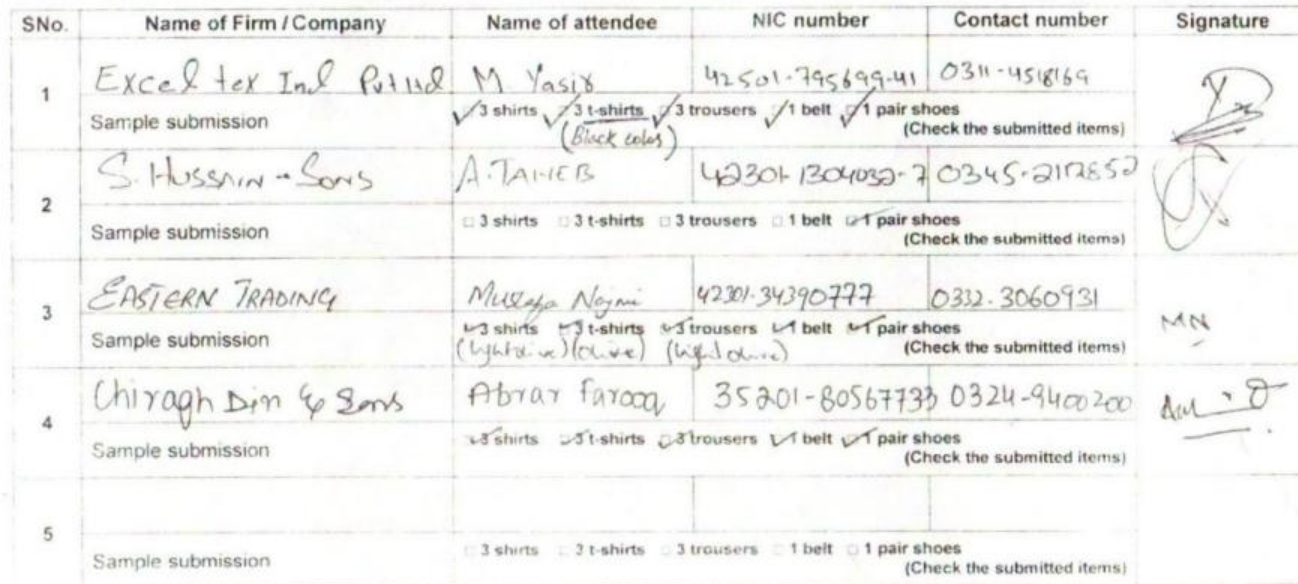 SNo. Name of Firm / Company Name of attendee NIC number Contact number Signature
1 Excel tex Ind Pvt Ltd M. Yasir 42501-795699-41 0311-4518169
Sample submission ✓3 shirts ✓3 t-shirts ✓3 trousers ✓1 belt ✓1 pair shoes
(Black color) (Check the submitted items)
2 S. HUSSAIN - SONS A. 42301-1304032-7 0345-2112852
Sample submission □ 3 shirts □ 3 t-shirts □ 3 trousers □ 1 belt ✓1 pair shoes
(Check the submitted items)
3 EASTERN TRADING Mustafa Najmi 42301-34390777 0332-3060931 MN
Sample submission ✓3 shirts ✓3 t-shirts ✓3 trousers ✓1 belt ✓1 pair shoes
(light olive) (olive) (light olive) (Check the submitted items)
4 Chiragh Din & Sons Abrar Farooq 35201-80567733 0324-9400200
Sample submission ✓3 shirts ✓3 t-shirts ✓3 trousers ✓1 belt ✓1 pair shoes
(Check the submitted items)
5
Sample submission □ 3 shirts □ 3 t-shirts □ 3 trousers □ 1 belt □ 1 pair shoes
(Check the submitted items)